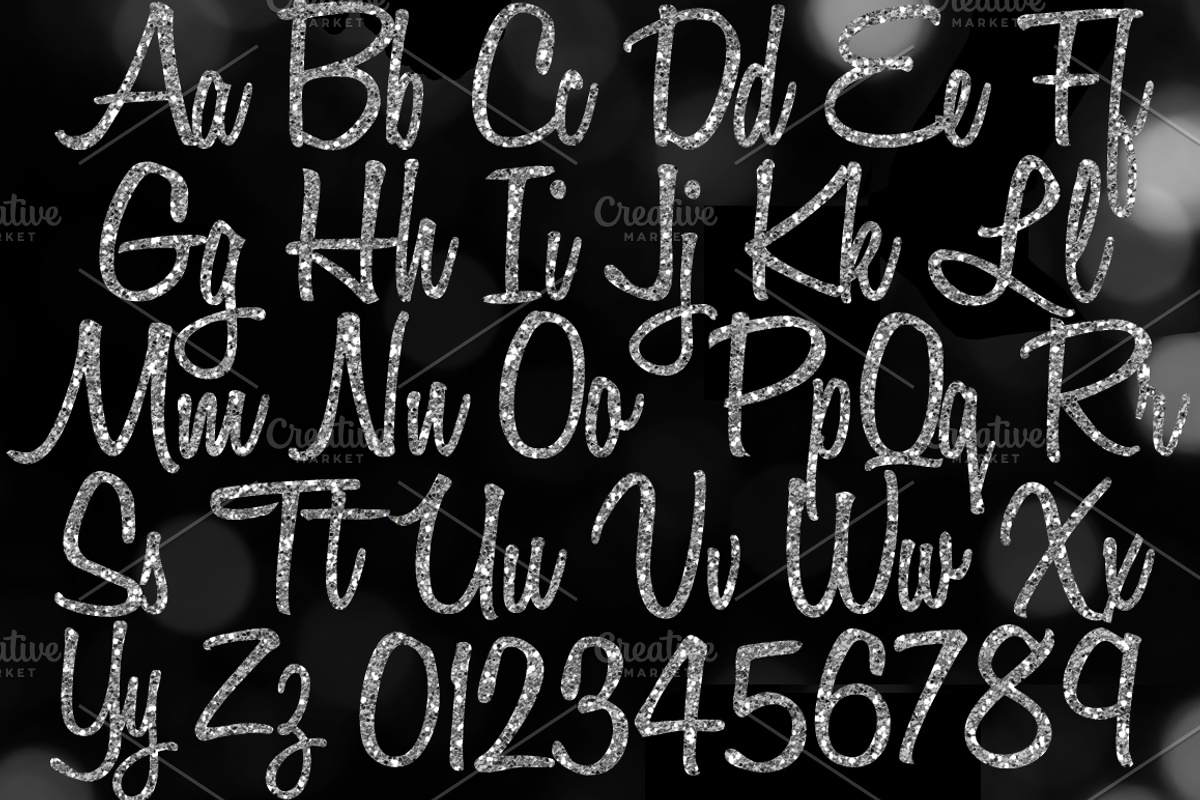 Aa Bb Cc Dd Ee Ff
Gg Hh Ii Jj Kk Ll
Mm Nn Oo Pp Qq Rr
Ss Tt Uu Vv Ww Xx
Yy Zz 0123456789
Creative
MARKET
Creative
MARKET
Creative
MARKET
Creative
MARKET
Creative
MARKET
Creative
MARKET
Creative
MARKET
Creative
MARKET